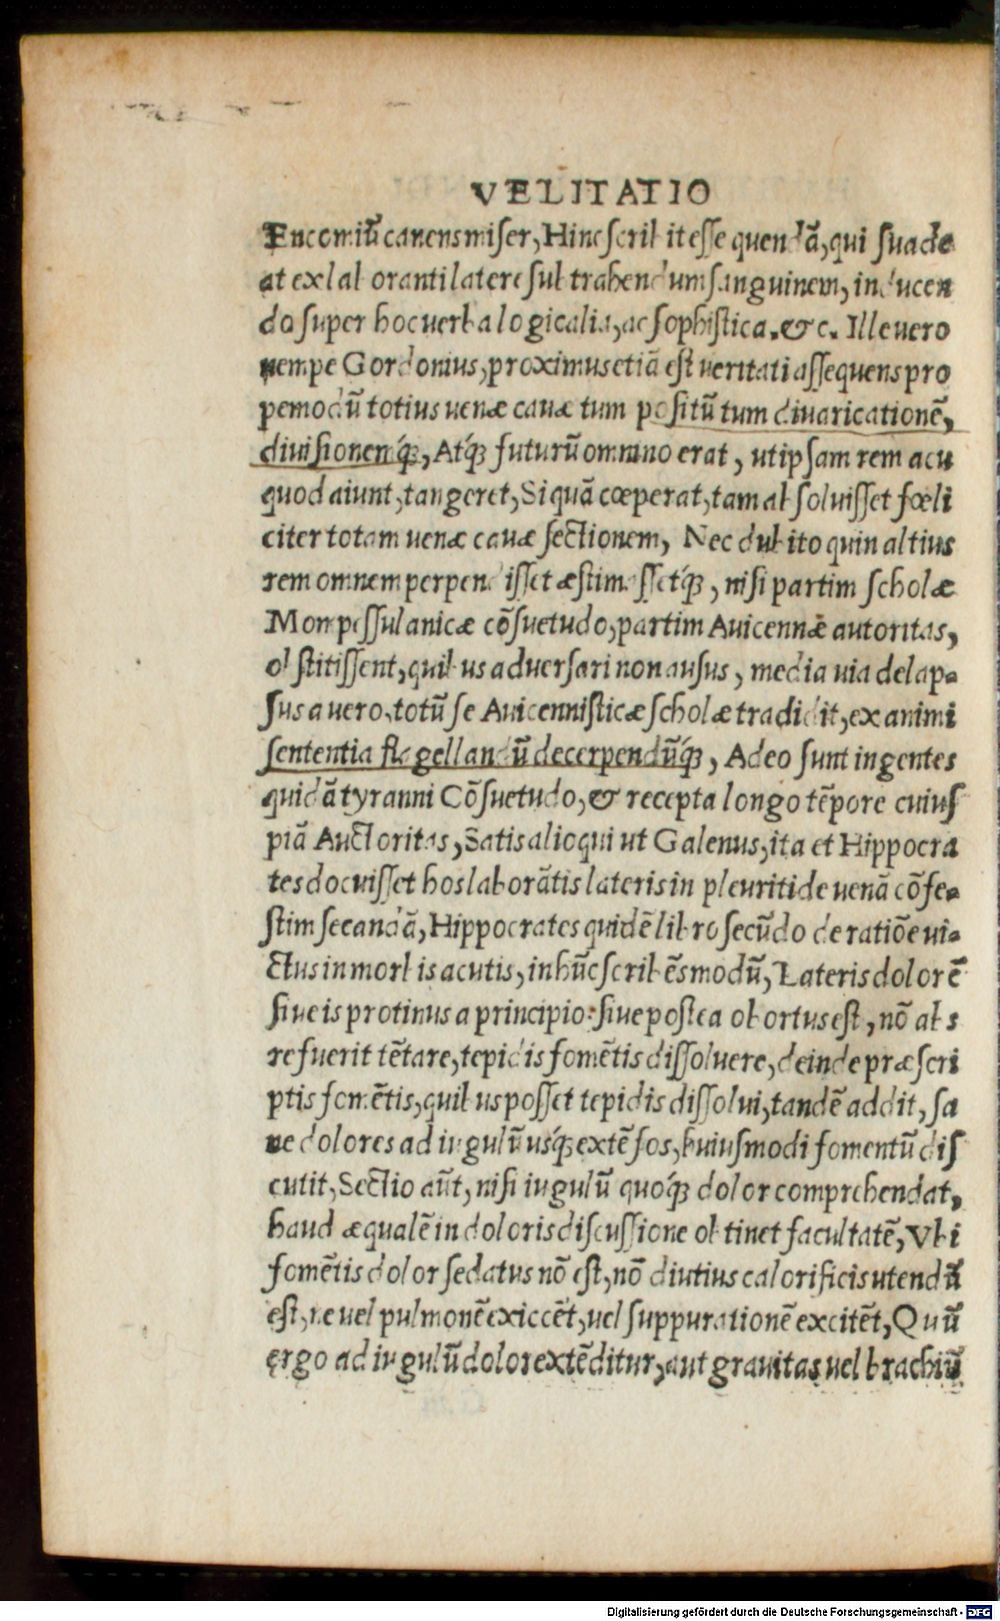 VELITATIO
Encomiũ canens miser, Hinc scribit esse quendã, qui suade
at ex laboranti latere subtrahendum sanguinem, inducen
do super hoc verba logicalia, ac sophistica.&c. Ille uero
nempe Gordonius, proximus etiã est ueritati assequens pro
pemodũ totius uenæ cauæ tum positũ tum diuaricationẽ,
diuisionemq́;, Atq́; futurũ omnino erat, ut ipsam rem acu
quod aiunt, tangeret, Si quã cœperat, tam absoluisset fœli
citer totam uenæ cauæ sectionem, Nec dubito quin altius
rem omnem perpendisset æstimassetq́;, nisi partim scholæ
Monpessulanicæ cõsuetudo, partim Auicennæ autoritas,
obstitissent, quibus aduersari non ausus, media uia delap-
sus a uero, totũ se Auicennisticæ scholæ tradidit, ex animi
sententia flagellandũ decerpendũq́;, Adeo sunt ingentes
quidã tyranni Cõsuetudo, & recepta longo tẽpore cuius
piã Auctoritas, Satis alioqui ut Galenus, ita et Hippocra
tes docuisset hos laborãtis lateris in pleuritide uenã cõfe-
stim secandã, Hippocrates quidẽ libro secũdo de ratiõe ui-
ctus in morbis acutis, in hũc scribẽs modũ, Lateris dolorẽ
siue is protinus a principio: siue postea obortus est, nõ abs
re fuerit tẽtare, tepidis fomẽtis dissoluere, deinde præscri
ptis fomẽtis, quibus posset tepidis dissolui, tandẽ addit, sa
ne dolores ad iugulũ usq́; extẽsos, huiusmodi fomentũ dis
cutit, Sectio aũt, nisi iugulũ quoq́; dolor comprehendat,
haud æqualẽ in doloris discussione obtinet facultatẽ, Vbi
fomẽtis dolor sedatus nõ est, nõ diutius calorificis utendũ
est, ne uel pulmonẽ exiccẽt, uel suppurationẽ excitẽt, Quũ
ergo ad iugulũ dolor extẽditur, aut grauitas uel brachiũ
Digitalisierung gefördert durch die Deutsche Forschungsgemeinschaft - DFG